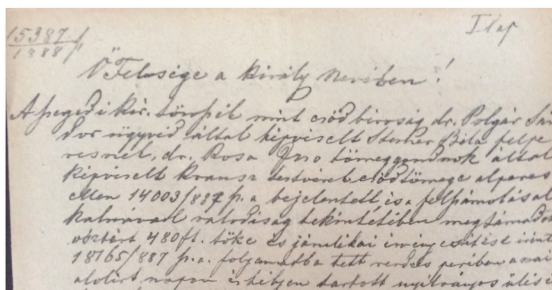 15387/1888
I lap
Ő Felsége a király nevében!
A szegedi kir. törvszék mint csődbíróság dr. Polgár Sán
dor ügyvéd által képviselt Béla felpe
resnek, dr. Rosa Izsó tömeggondnok által
képviselt Krausz testvérek csődtömege alperes
ellen 14003/887 p.a. bejelentett és a felszámolási
valódiság tekintetében megtámadott
480 ft. tőke és járulékai iránt
18765/887 p.a. folyamatba tett rendes perében a mai
alólirt napon és helyen tartott nyilvános ülést